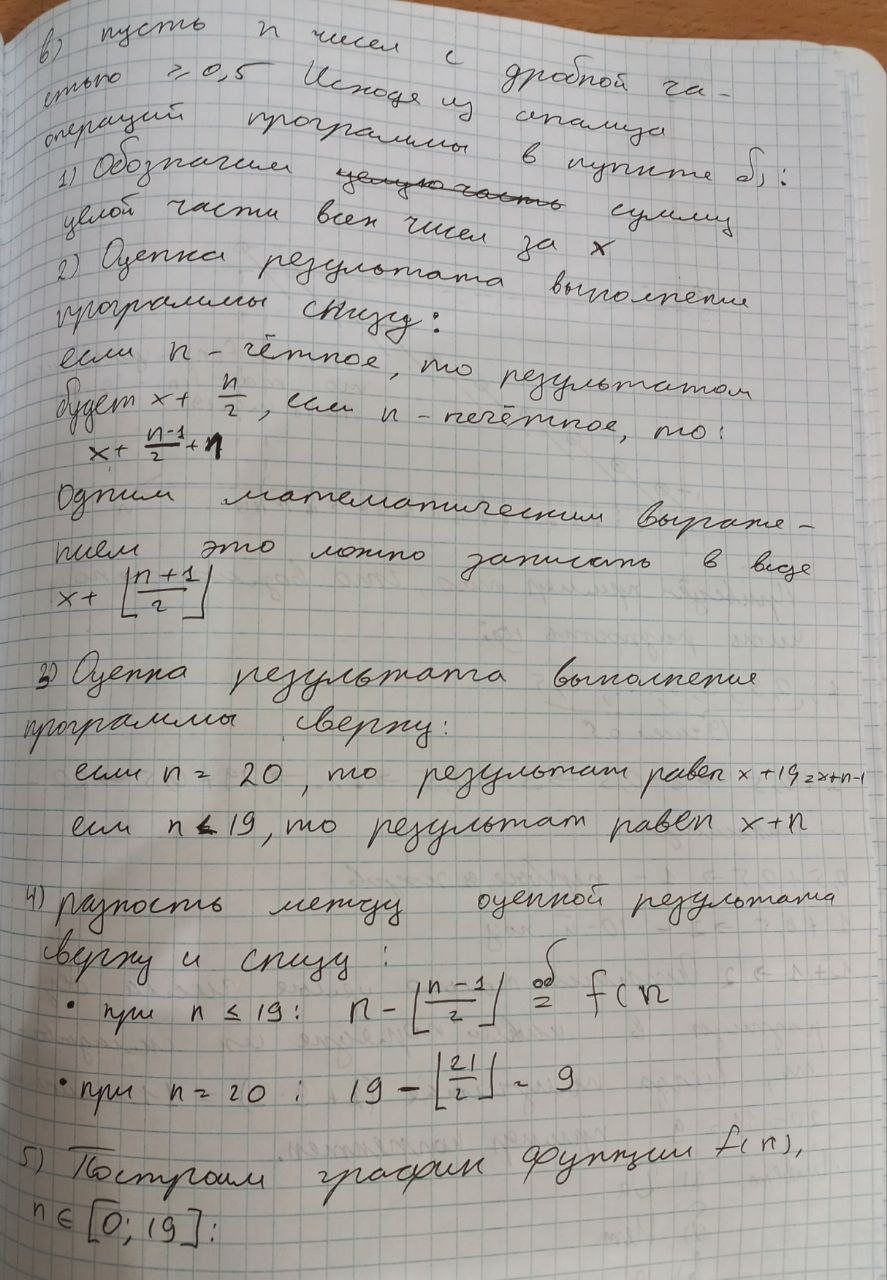 в) пусть n чисел с дробной ча-
стью ≥ 0,5 Исходя из анализа
операций программы в пункте б):
1) Обозначим целую часть сумму
целой части всех чисел за x
2) Оценка результата выполнение
программы снизу:
если n - чётное, то результатом
будет x + n/2, если n - нечётное, то:
x + (n-1)/2 + n
Одним математическим выраже-
нием это можно записать в виде
x + ⌊(n+1)/2⌋
3) Оценка результата выполнение
программы сверху:
если n = 20, то результат равен x + 19 = x+n-1
если n ≤ 19, то результат равен x + n
4) разность между оценкой результата
сверху и снизу:
• при n ≤ 19: n - ⌊(n-1)/2⌋ об = f(n
• при n = 20: 19 - ⌊21/2⌋ = 9
5) Построим график функции f(n),
n ∈ [0; 19]: